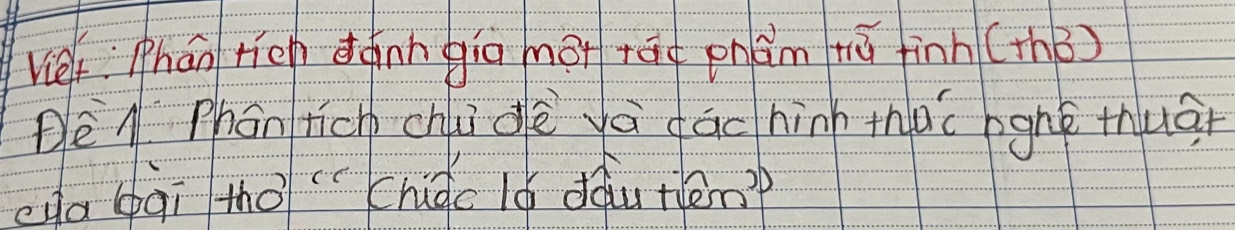 Viết: Phân tích đánh giá một tác phẩm trữ tình (thơ)
Đề 1: Phân tích chủ đề và các hình thức nghệ thuật
của bài thơ "Chiếc lá đầu tiên"